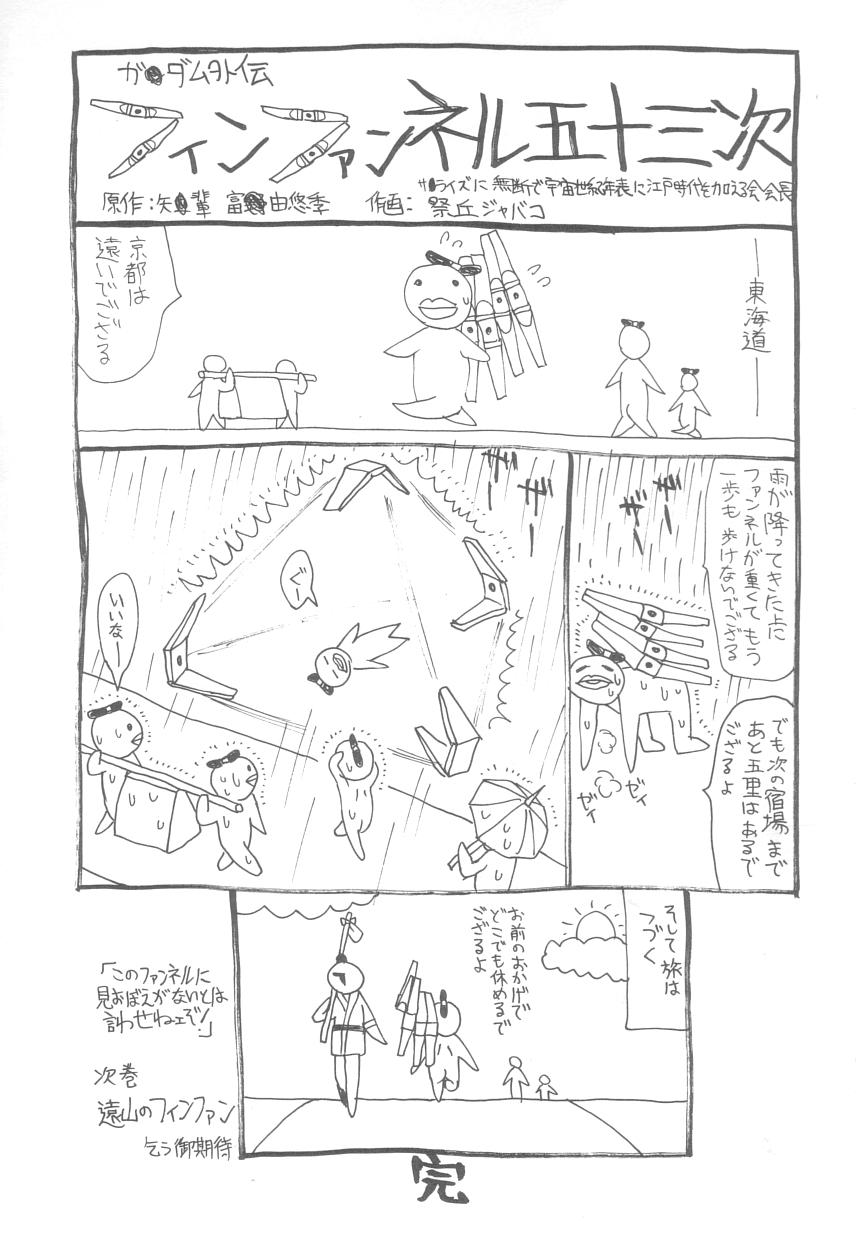 ガ●ダム外伝
フィンファンネル五十三次
サ●ライズに無断で宇宙世紀年表に江戸時代を加える会会長
原作：矢●輩 富●由悠季 作画：祭丘ジャバコ
―東海道―
京都は
遠いでござる
雨が降ってきた上に
ファンネルが重くてもう
一歩も歩けないでござる
チー
ギー
でも次の宿場まで
あと五里はあるで
ござるよ
ゼィ
ゼィ
チー
チー
ぐー
いいなー
そして旅は
つづく
お前のおかげで
どこでも休めるで
ござるよ
「このファンネルに
見おぼえがないとは
言わせねェぞ!」
次巻
遠山のフィンファン
乞う御期待
完